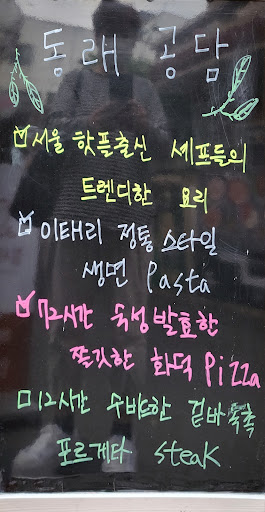 동래 공담
서울 핫플출신 셰프들의
트렌디한 요리
이태리 정통스타일
생면 Pasta
72시간 숙성발효한
쫄깃한 화덕 Pizza
12시간 수비드한 겉바속촉
포르게타 steak